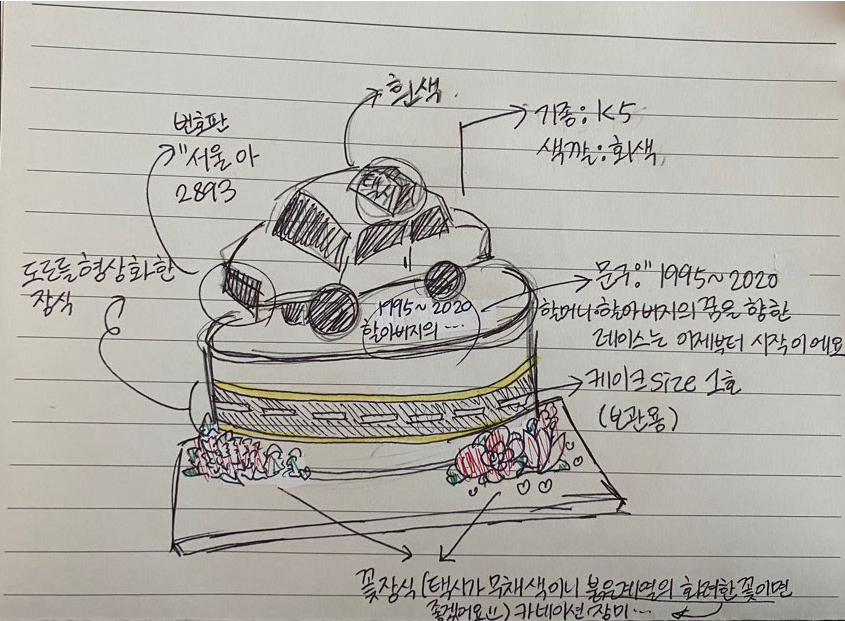 흰색
번호판
"서울 아
2893
기종: K5
색깔: 회색
택시
도로를 형상화한
장식
문구: "1995~2020
할머니·할아버지의 꿈을 향한
레이스는 이제부터 시작이에요
1995~2020
할아버지의 ...
케이크 size 1호
(보관용)
꽃장식 (택시가 무채색이니 붉은계열의 화려한 꽃이면
좋겠어요!!) 카네이션·장미...